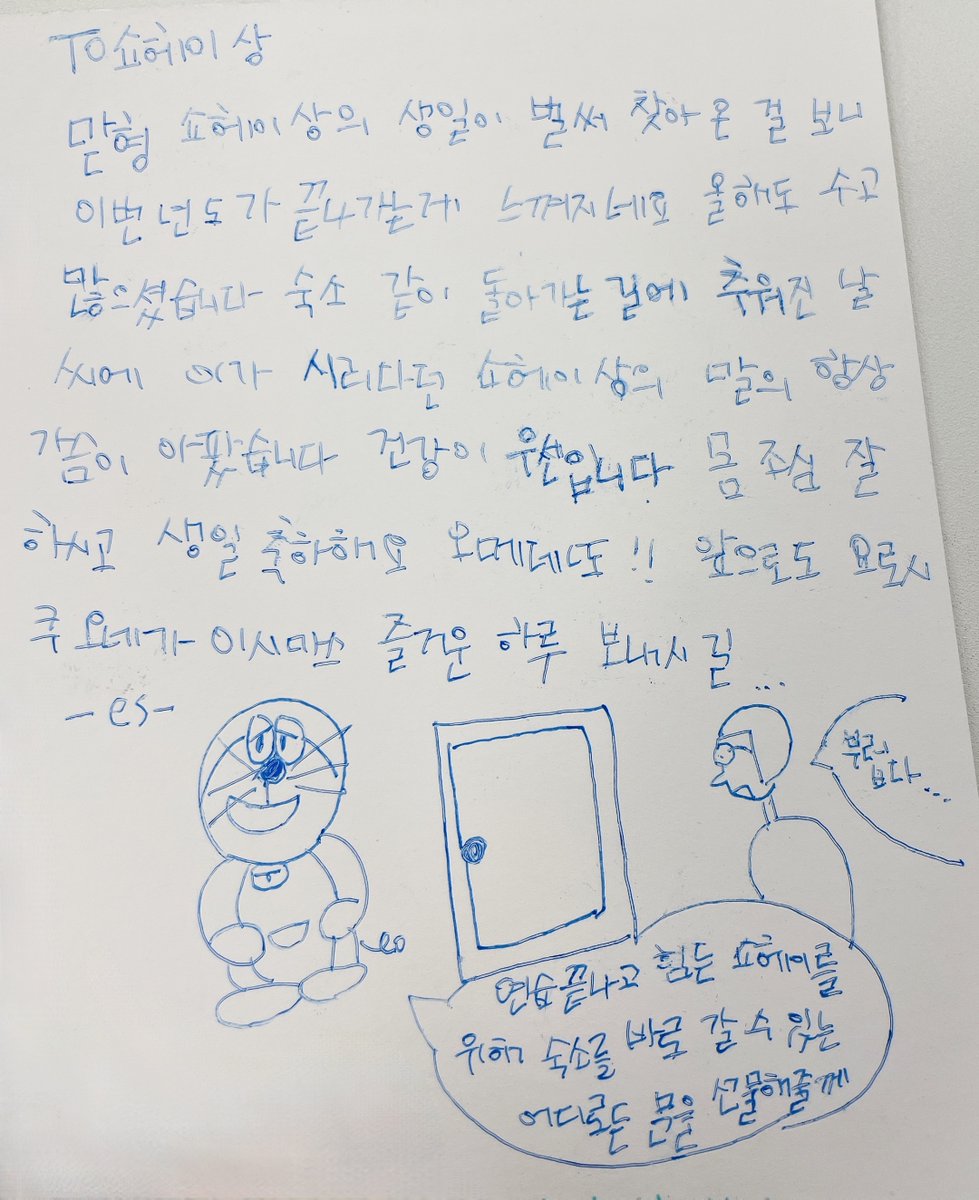 TO 쇼헤이 상
맏형 쇼헤이상의 생일이 벌써 찾아온 걸 보니
이번년도가 끝나가는게 느껴지네요 올해도 수고
많으셨습니다 숙소 같이 돌아가는 길에 추워진 날
씨에 이가 시리다던 쇼헤이상의 말의 항상
가슴이 아팠습니다 건강이 우선입니다 몸 조심 잘
하시고 생일 축하해요 오메데또!! 앞으로도 요로시
쿠 오네가이시마스 즐거운 하루 보내시길...
-es-
부럽다...
연습 끝나고 힘든 쇼헤이를
위해 숙소를 바로 갈 수 있는
어디로든 문을 선물해줄게